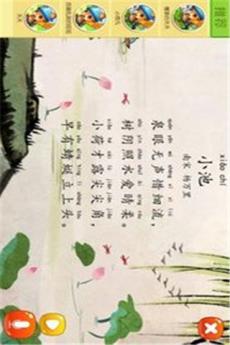 推荐
xiǎo chí
小池
南宋 杨万里
quán yǎn wú shēng xī xì liú
泉眼无声惜细流，
shù yīn zhào shuǐ ài qíng róu
树阴照水爱晴柔。
xiǎo hé cái lù jiān jiān jiǎo
小荷才露尖尖角，
zǎo yǒu qīng tíng lì shàng tóu
早有蜻蜓立上头。